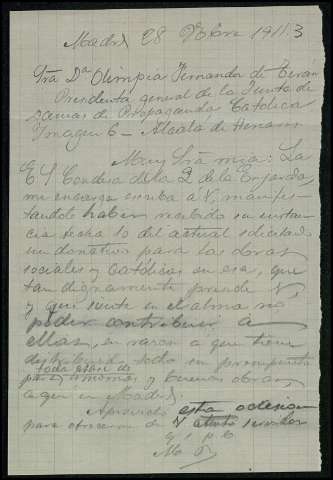 Madrid 28 1913
Sra Dª Olimpia Fernandez de Terán
Presidenta general de la Junta de
Damas de Propaganda Católica
Imagen 6 - Alcalá de Henares
Muy Sra mia: La
E S Condesa de la de la Enjarada,
me encarga escriba á V, manifes-
tandole haber recibido su instan-
cia fecha 10 del actual solicitando
un donativo para las obras
sociales y Católicas en esa, que
tan dignamente preside V
y que siente en el alma no
poder contribuir á
ellas, en razon á que tiene
distribuido todo su presupuesto
toda clase de
para limosnas y buenas obras,
aqui en Madrid.
Aprovecho esta ocasion
para ofrecerme de V atento servidor
q s p b